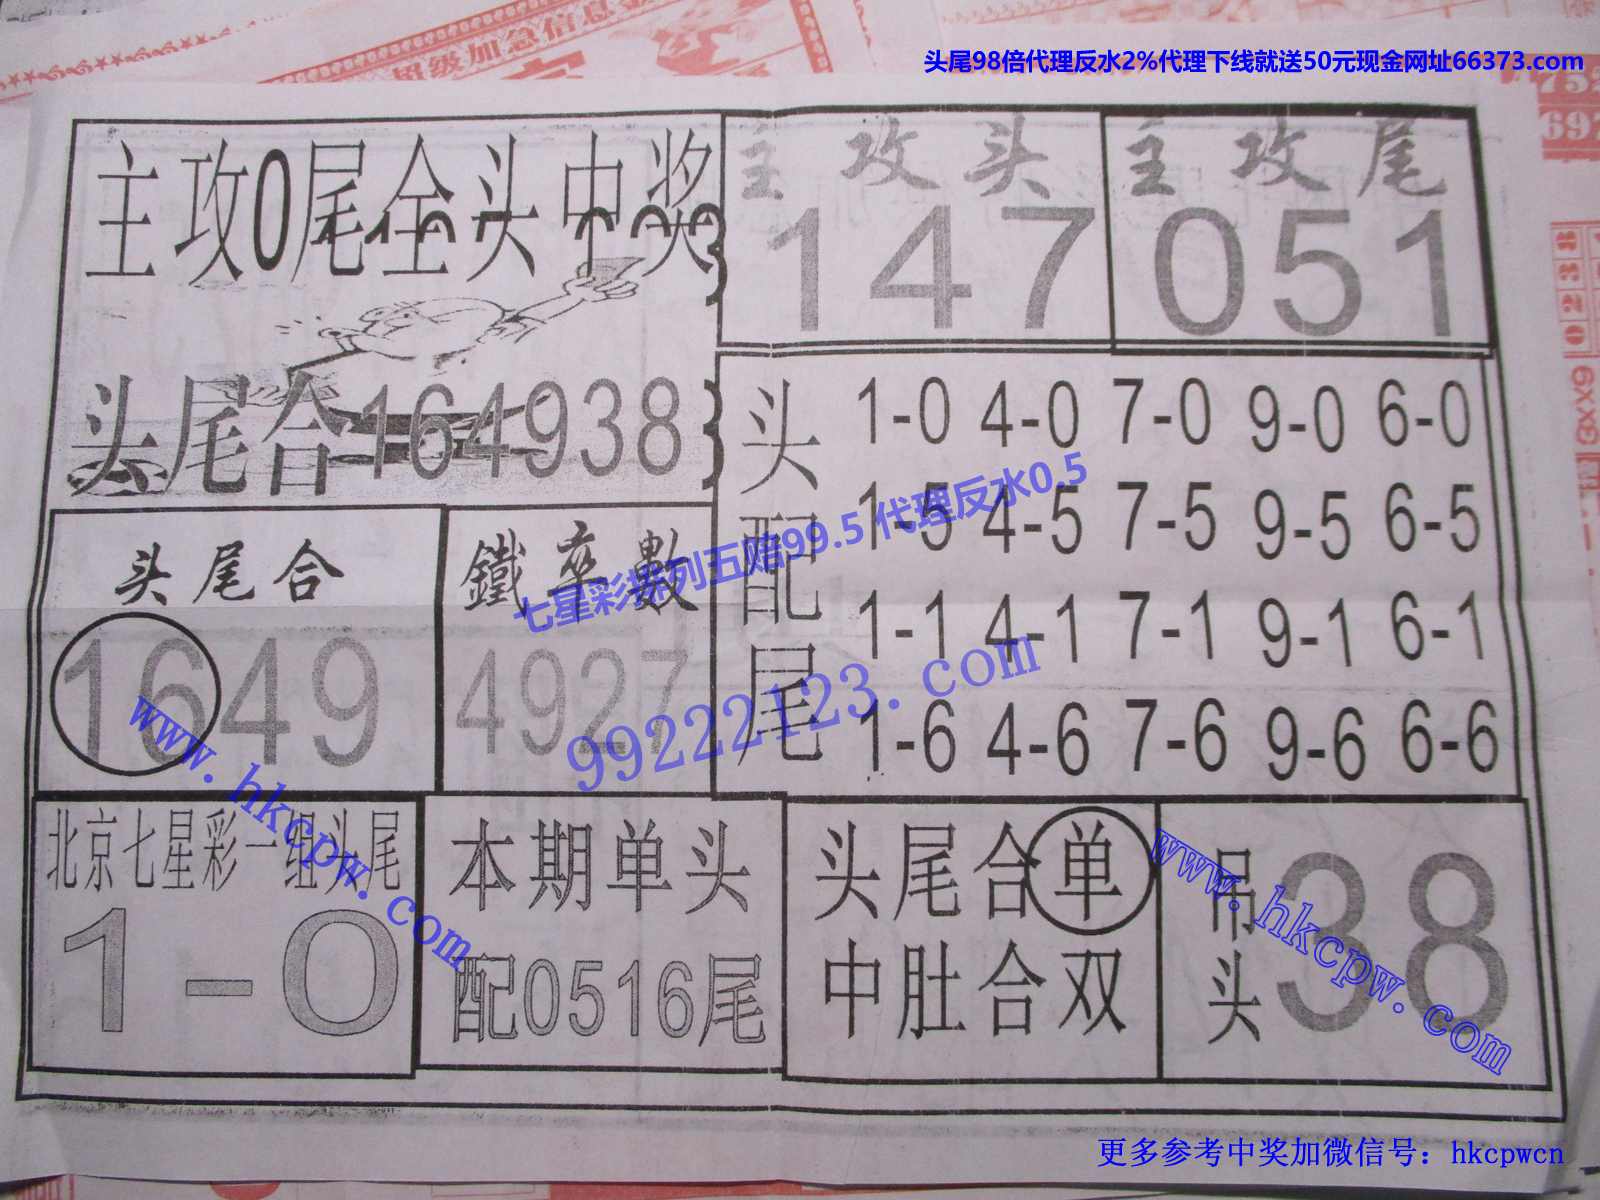 头尾98倍代理反水2%代理下线就送50元现金网址66373.com
超级加急信息
主攻0尾全头中奖
头尾合164938
主攻头
147
主攻尾
051
头配尾
1-0 4-0 7-0 9-0 6-0
1-5 4-5 7-5 9-5 6-5
1-1 4-1 7-1 9-1 6-1
1-6 4-6 7-6 9-6 6-6
头尾合
1649
鐵卒數
4927
七星彩排列五赔99.5 代理反水0.5
99222123.com
www.hkcpw.com
北京七星彩一组头尾
1-0
本期单头
配0516尾
头尾合单
中肚合双
吊头
38
www.hkcpw.com
更多参考中奖加微信号：hkcpwcn